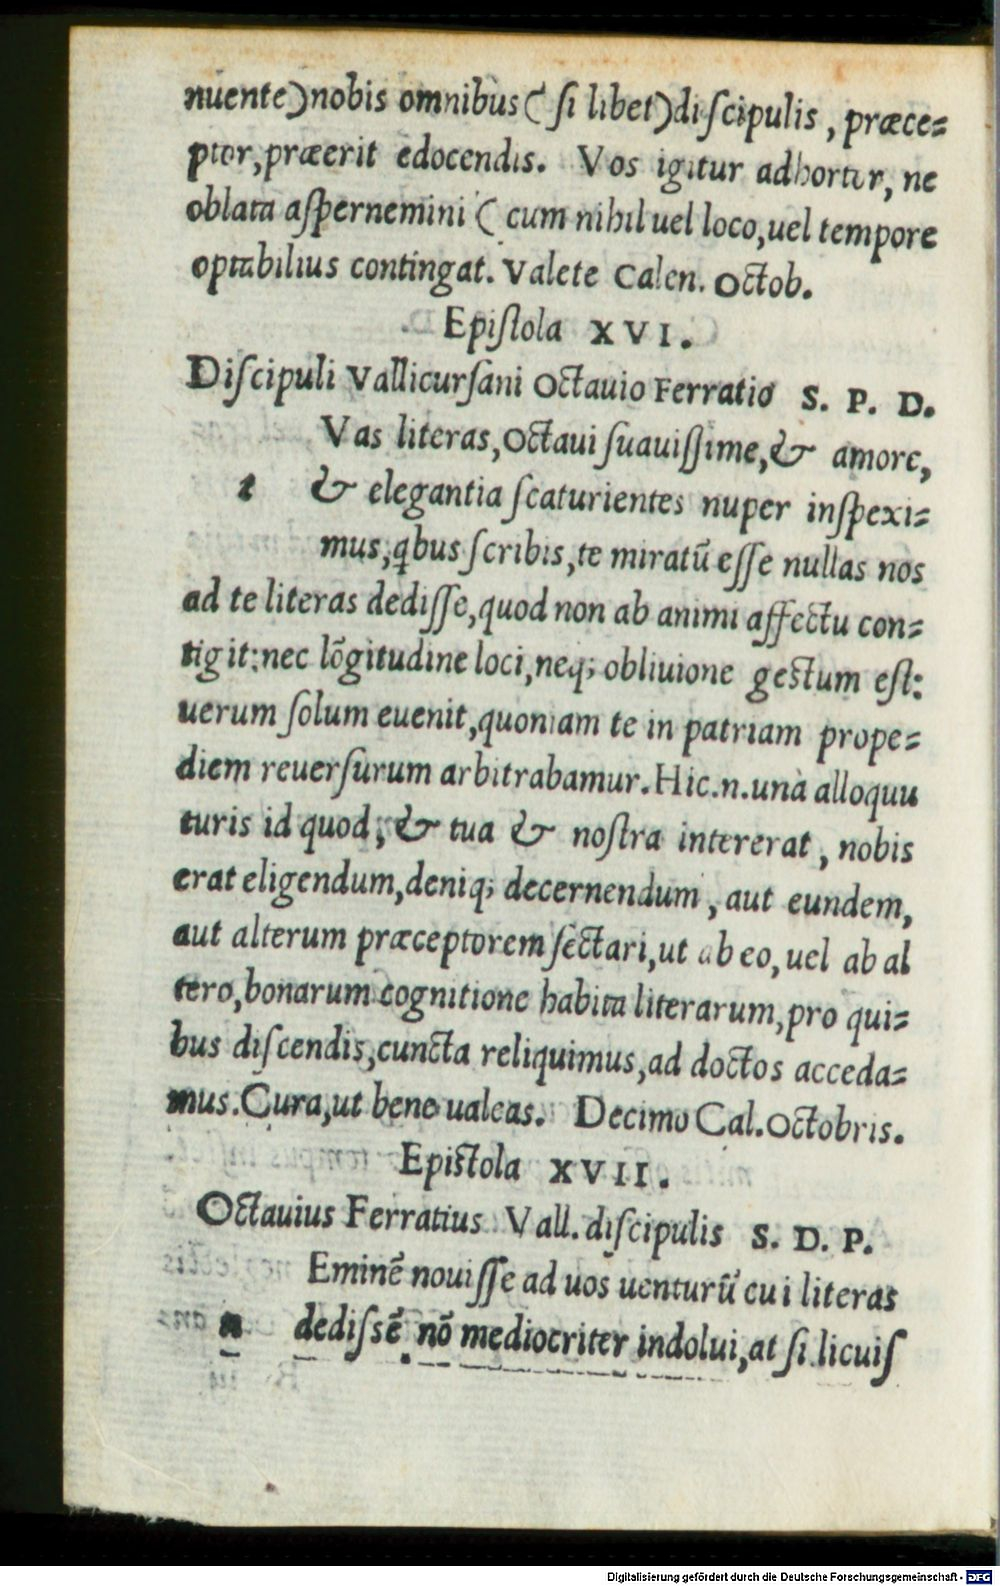 nuente)nobis omnibus( ſi libet)diſcipulis, præce=
ptor, præerit edocendis. Vos igitur adhortor, ne
oblata aſpernemini ( cum nihil uel loco, uel tempore
optabilius contingat. Valete Calen. Octob.
Epiſtola XVI.
Diſcipuli Vallicurſani Octauio Ferratio S. P. D.
Vas literas, Octaui ſuauiſſime, & amore,
t & elegantia ſcaturientes nuper inſpexi=
mus, qbus ſcribis, te miratū eſſe nullas nos
ad te literas dediſſe, quod non ab animi affectu con=
tigit: nec lōgitudine loci, neq; obliuione geſtum eſt:
uerum ſolum euenit, quoniam te in patriam prope=
diem reuerſurum arbitrabamur. Hic .n. unà alloquu
turis id quod, & tua & noſtra intererat, nobis
erat eligendum, deniq; decernendum, aut eundem,
aut alterum præceptorem ſectari, ut ab eo, uel ab al
tero, bonarum cognitione habita literarum, pro qui=
bus diſcendis, cuncta reliquimus, ad doctos acceda=
mus. Cura, ut bene ualeas. Decimo Cal. Octobris.
Epiſtola XVII.
Octauius Ferratius Vall. diſcipulis S. D. P.
Eminē nouiſſe ad uos uenturū cui literas
n dediſsē nō mediocriter indolui, at ſi licuiſ
Digitalisierung gefördert durch die Deutsche Forschungsgemeinschaft - DFG